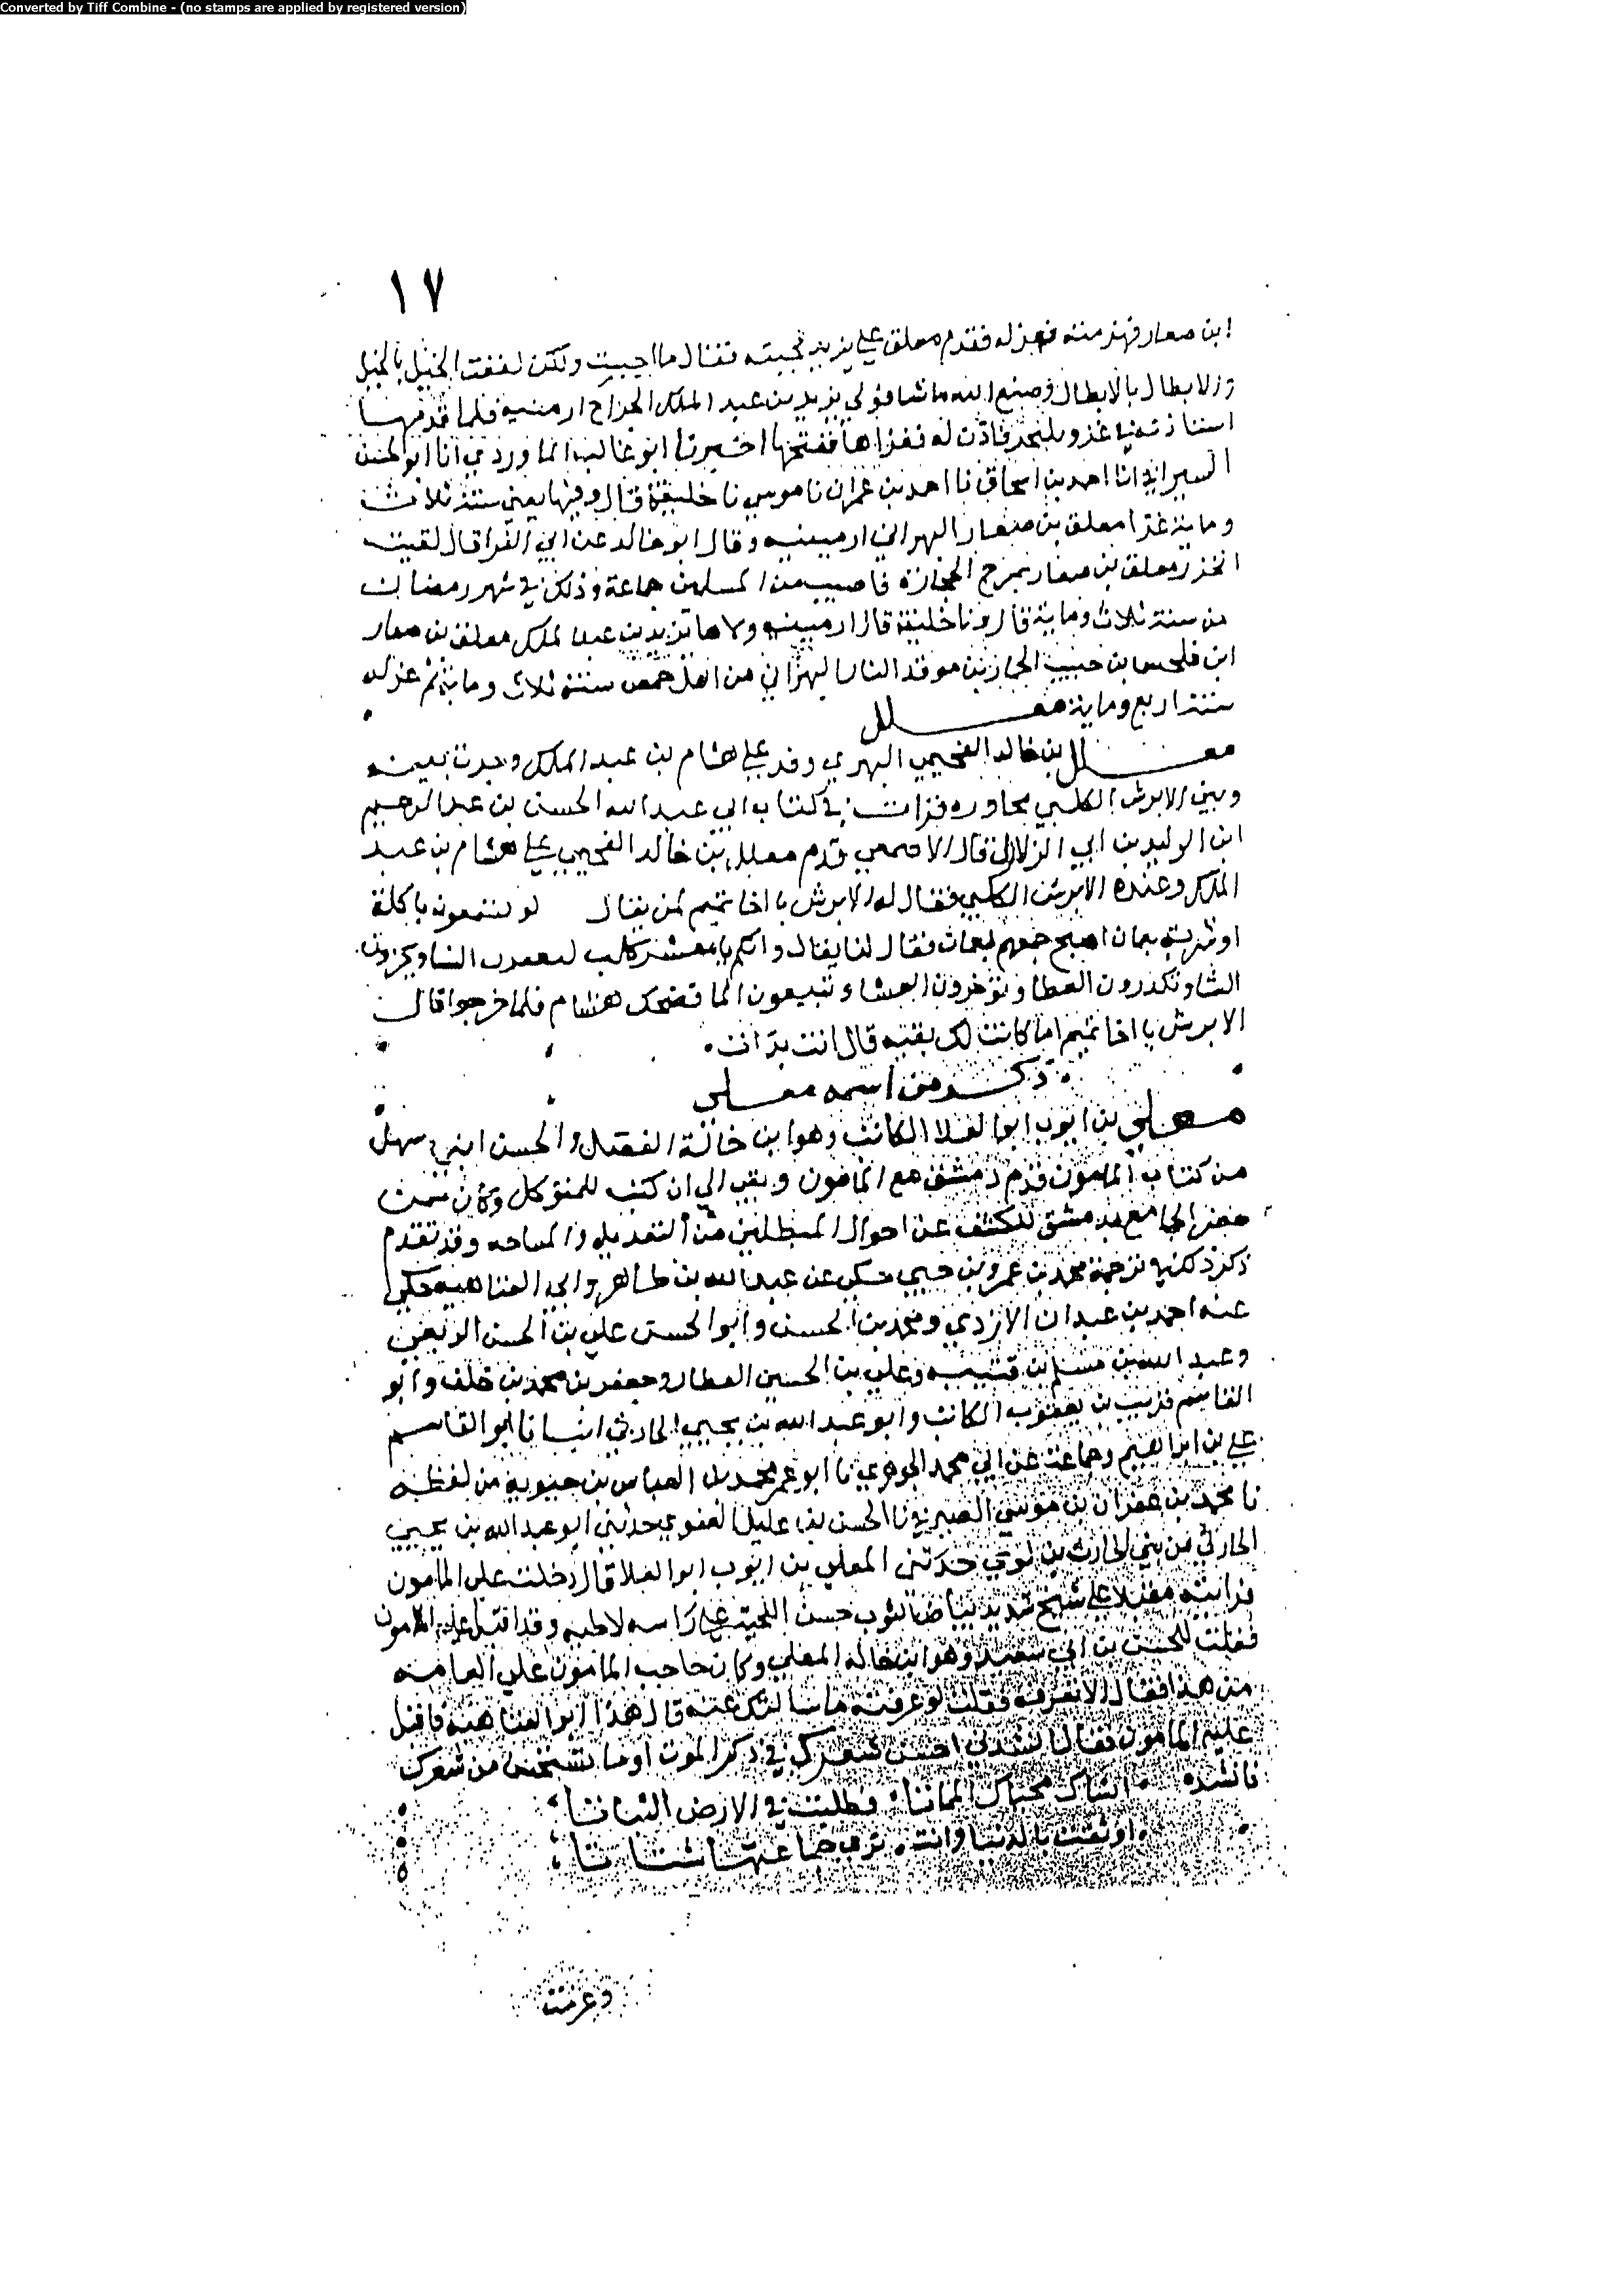 Converted by Tiff Combine - (no stamps are applied by registered version)
١٧
ابن صعار فهزمته فعزله فقدم معلق على يزيد فجبنه فقال ما اجبنت ولكن لففت الخيل بالخيل
والابطال بالابطال وصنع الله ما شا فولي يزيد بن عبد الملك الجراح ارمنيه فلما قدمها
استاذنه في غزو بلنجر فاذن له فغزاها ففتحها اخبرنا ابو غالب الماوردي انا ابو الحسن
السيرافي انا احمد بن اسحاق نا احمد بن عمران نا موسي نا خليفة قال وفيها يعني سنة ثلاث
وماية غزا معلق بن صعار البهراني ارمينيه وقال ابو خالد عن ابي الفرا قال لقيت
الخزر معلق بن صعار بمرج الحجارة فاصيب من المسلمين جماعة وذلك في شهر رمضان
من سنة ثلاث وماية قال ونا خليفة قال ارمينيه ولاها يزيد بن عبد الملك معلق بن صعار
ابن فلحس بن حبيب بن موقد النار البهراني من اهل حمص سنة ثلاث وماية ثم عزله
سنة اربع وماية معلل
معلل بن خالد الفجيمي البهري وفد علي هشام بن عبد الملك وجرت بينه
وبين الابرش الكلبي محاوره قرات في كتاب ابي عبد الله الحسن بن عبد الرحيم
ابن الوليد بن ابي الزلازل قال الاصمعي قدم معلل بن خالد الفجيمي علي هشام بن عبد
الملك وعنده الابرش الكلبي فقال له الابرش يا اخا تميم لمن يقال لو يسمعون باكلة
او شربة بعمان اصبح جمعهم بعمان فقال لنا يقال وانكم يا معشر كلب النسا وتجزون
الشا وتكدرون العطا وتؤخرون العشاء وتبيعون الما فضحك هشام فلما خرجوا قال
الابرش يا اخا تميم اما كانت لك بقيه قال انت بدات .
ذكر من اسمه معلي
معلي بن ايوب ابو العلا الكاتب وهو ابن خالة الفضل والحسن ابني سهل
من كتاب المامون قدم دمشق مع المامون وبقي الي ان كتب للمتوكل وكان ممن
حضر الجامع بدمشق للكشف عن احوال المبطلين من التعديل والمساحه وقد تقدم
ذكر ذلك في ترجمة محمد بن عمرو بن حيي حكي عن عبد الله بن طاهر وابي العتاهيه حكي
عنه احمد بن عبدان الازدي ومحمد بن الحسن وابو الحسن علي بن الحسن الربعي
وعبد الله بن مسلم بن قتيبه وعلي بن الحسين العطار وجعفر بن محمد بن خلف وابو
القاسم بن يعقوب الكاتب وابو عبد الله بن يحيي الحارثي انبانا ابو القاسم
علي بن ابراهيم وجماعة عن ابي محمد الجوهري نا ابو عمر محمد بن العباس بن حيوية من لفظه
نا محمد بن عمران بن موسي الصيرفي نا الحسن بن عليل العنزي حدثني ابو عبد الله بن يحيي
الحارثي من بني الحارث بن لوي حدثني المعلي بن ايوب ابو العلا قال دخلت علي المامون
فرايته مقبلا علي شيخ شديد بياض الثوب حسن اللحية علي راسه لاطيه وقد اقبل عليه المامون
فقلت للحسن بن ابي سعيد وهو ابن خالة المعلي وكان حاجب المامون علي العامه
من هذا فقال الا تعرفه فقلت لو عرفته ما سالتك عنه قال هذا ابو العتاهية فاقبل
عليه المامون فقال انشدني احسن شعرك في ذكر الموت او ما تستحسن من شعرك
فانشده . انساك محياك المماتا . فطلبت في الارض الثباتا .
. اوثقت بالدنيا وانت . تري جماعتها شتاتا .
وعزمت